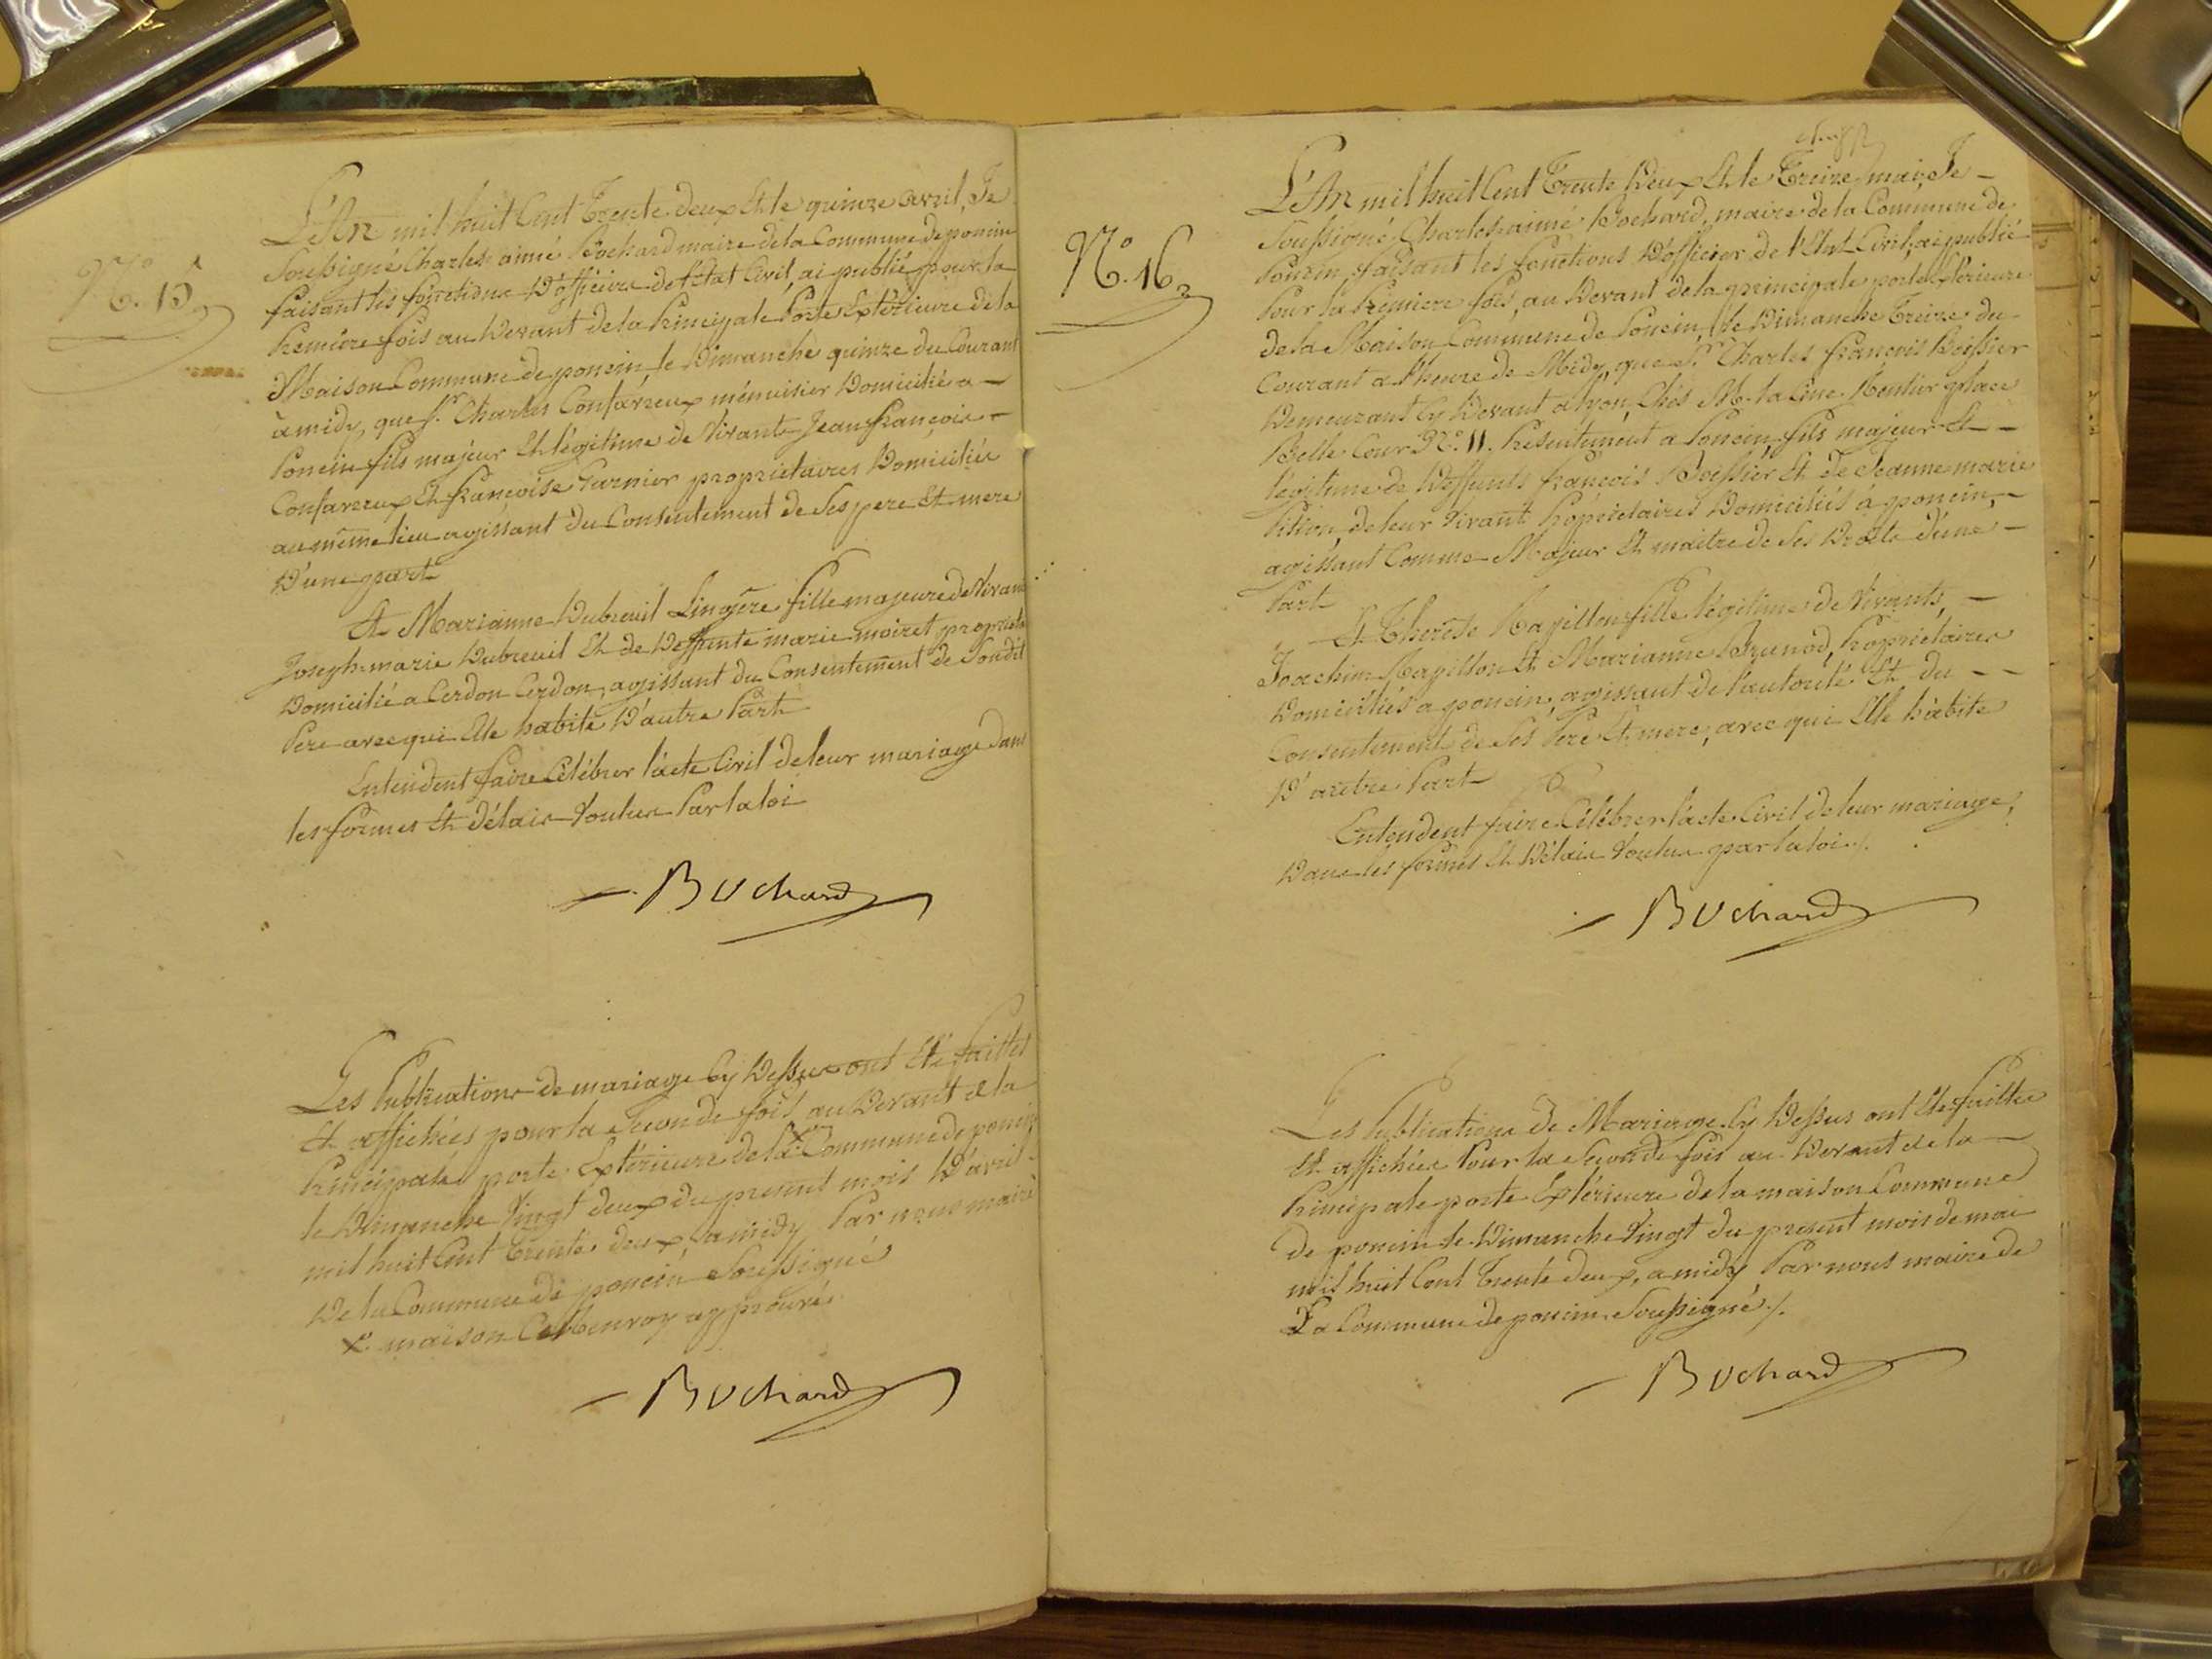 N.° 15
L'An mil huit Cent Trente deux Et le quinze avril, Je
Soussigné Charles aimé Bochard maire de la Commune de poncin
faisant les fonctions D'officier de l'Etat Civil, ai publié pour la
Premiére fois au Devant de la Principale Porte Extérieure de la
Maison Commune de poncin, le Dimanche quinze du Courant
à midy, que Sr. Charles Confavreux menuisier Domicilié a
Poncin fils majeur Et légitime de Vivants Jean françois
Confavreux Et françoise Garnier propriétaires Domiciliés
au même lieu agissant du Consentement de Ses pere Et mere
D'une part
Et Marianne Dubreuil Lingére fille majeure de Vivant
Joseph marie Dubreuil Et de Deffunte marie moiret propriet
Domicilié a Cerdon Cerdon, agissant du Consentement de Son dit
Pere avec qui Elle habite D'autre Part
Entendent faire Célébrer l'acte Civil de leur mariage Dans
les formes Et Délais Voulus Par la loi
Bochard
Les Publications de mariage Cy Dessus ont Eté faittes
Et affichées pour la Seconde fois au Devant de la
Principale porte Extérieure de la x Commune de poncin
le Dimanche Vingt deux du present mois D'avril
mil huit Cent Trente deux, a midy Par nous maire
De la Commune de poncin Soussigné
x maison approuvé
Bochard
N.° 16
L'An mil huit Cent Trente Deux Et le Treize mai, Je
Soussigné Charles aimé Bochard, maire de la Commune de
Poncin, faisant les fonctions D'officier de l'Etat Civil, ai publié
Pour la Premiere fois, au Devant de la principale porte Extérieure
de la Maison Commune de Poncin, le Dimanche Treize du
Courant a l'heure de Midy, que Sr. Charles françois Boissier
Demeurant Cy Devant a lyon, Chés M. la Cine Rentier place
Belle Cour N°. 11. Présentement a Poncin fils majeur Et
légitime de Deffunts françois Boissier Et de Jeanne marie
Pition, de leur Vivant Propriétaires Domiciliés à poncin,
agissant Comme Majeur Et maitre de Ses Droits D'une
Part
Et Thérèse Ravillon fille légitime de Vivants,
Joachim Ravillon Et Marianne Brunod, Propriétaires
Domiciliés a poncin, agissant de l'autorité Et du
Consentement de Ses Pere Et mere, avec qui Elle habite
D'autre Part
Entendent faire Célébrer l'acte Civil de leur mariage,
Dans les formes Et Délais Voulus par la loi ./.
Bochard
Les Publications de Mariage Cy Dessus ont Eté faittes
Et affichées Pour la Seconde fois au Devant de la
Principale porte Extérieure de la maison Commune
de poncin le Dimanche Vingt du present mois de mai
mil huit Cent Trente deux, a midy Par nous maire de
La Commune de poncin Soussigné ./.
Bochard